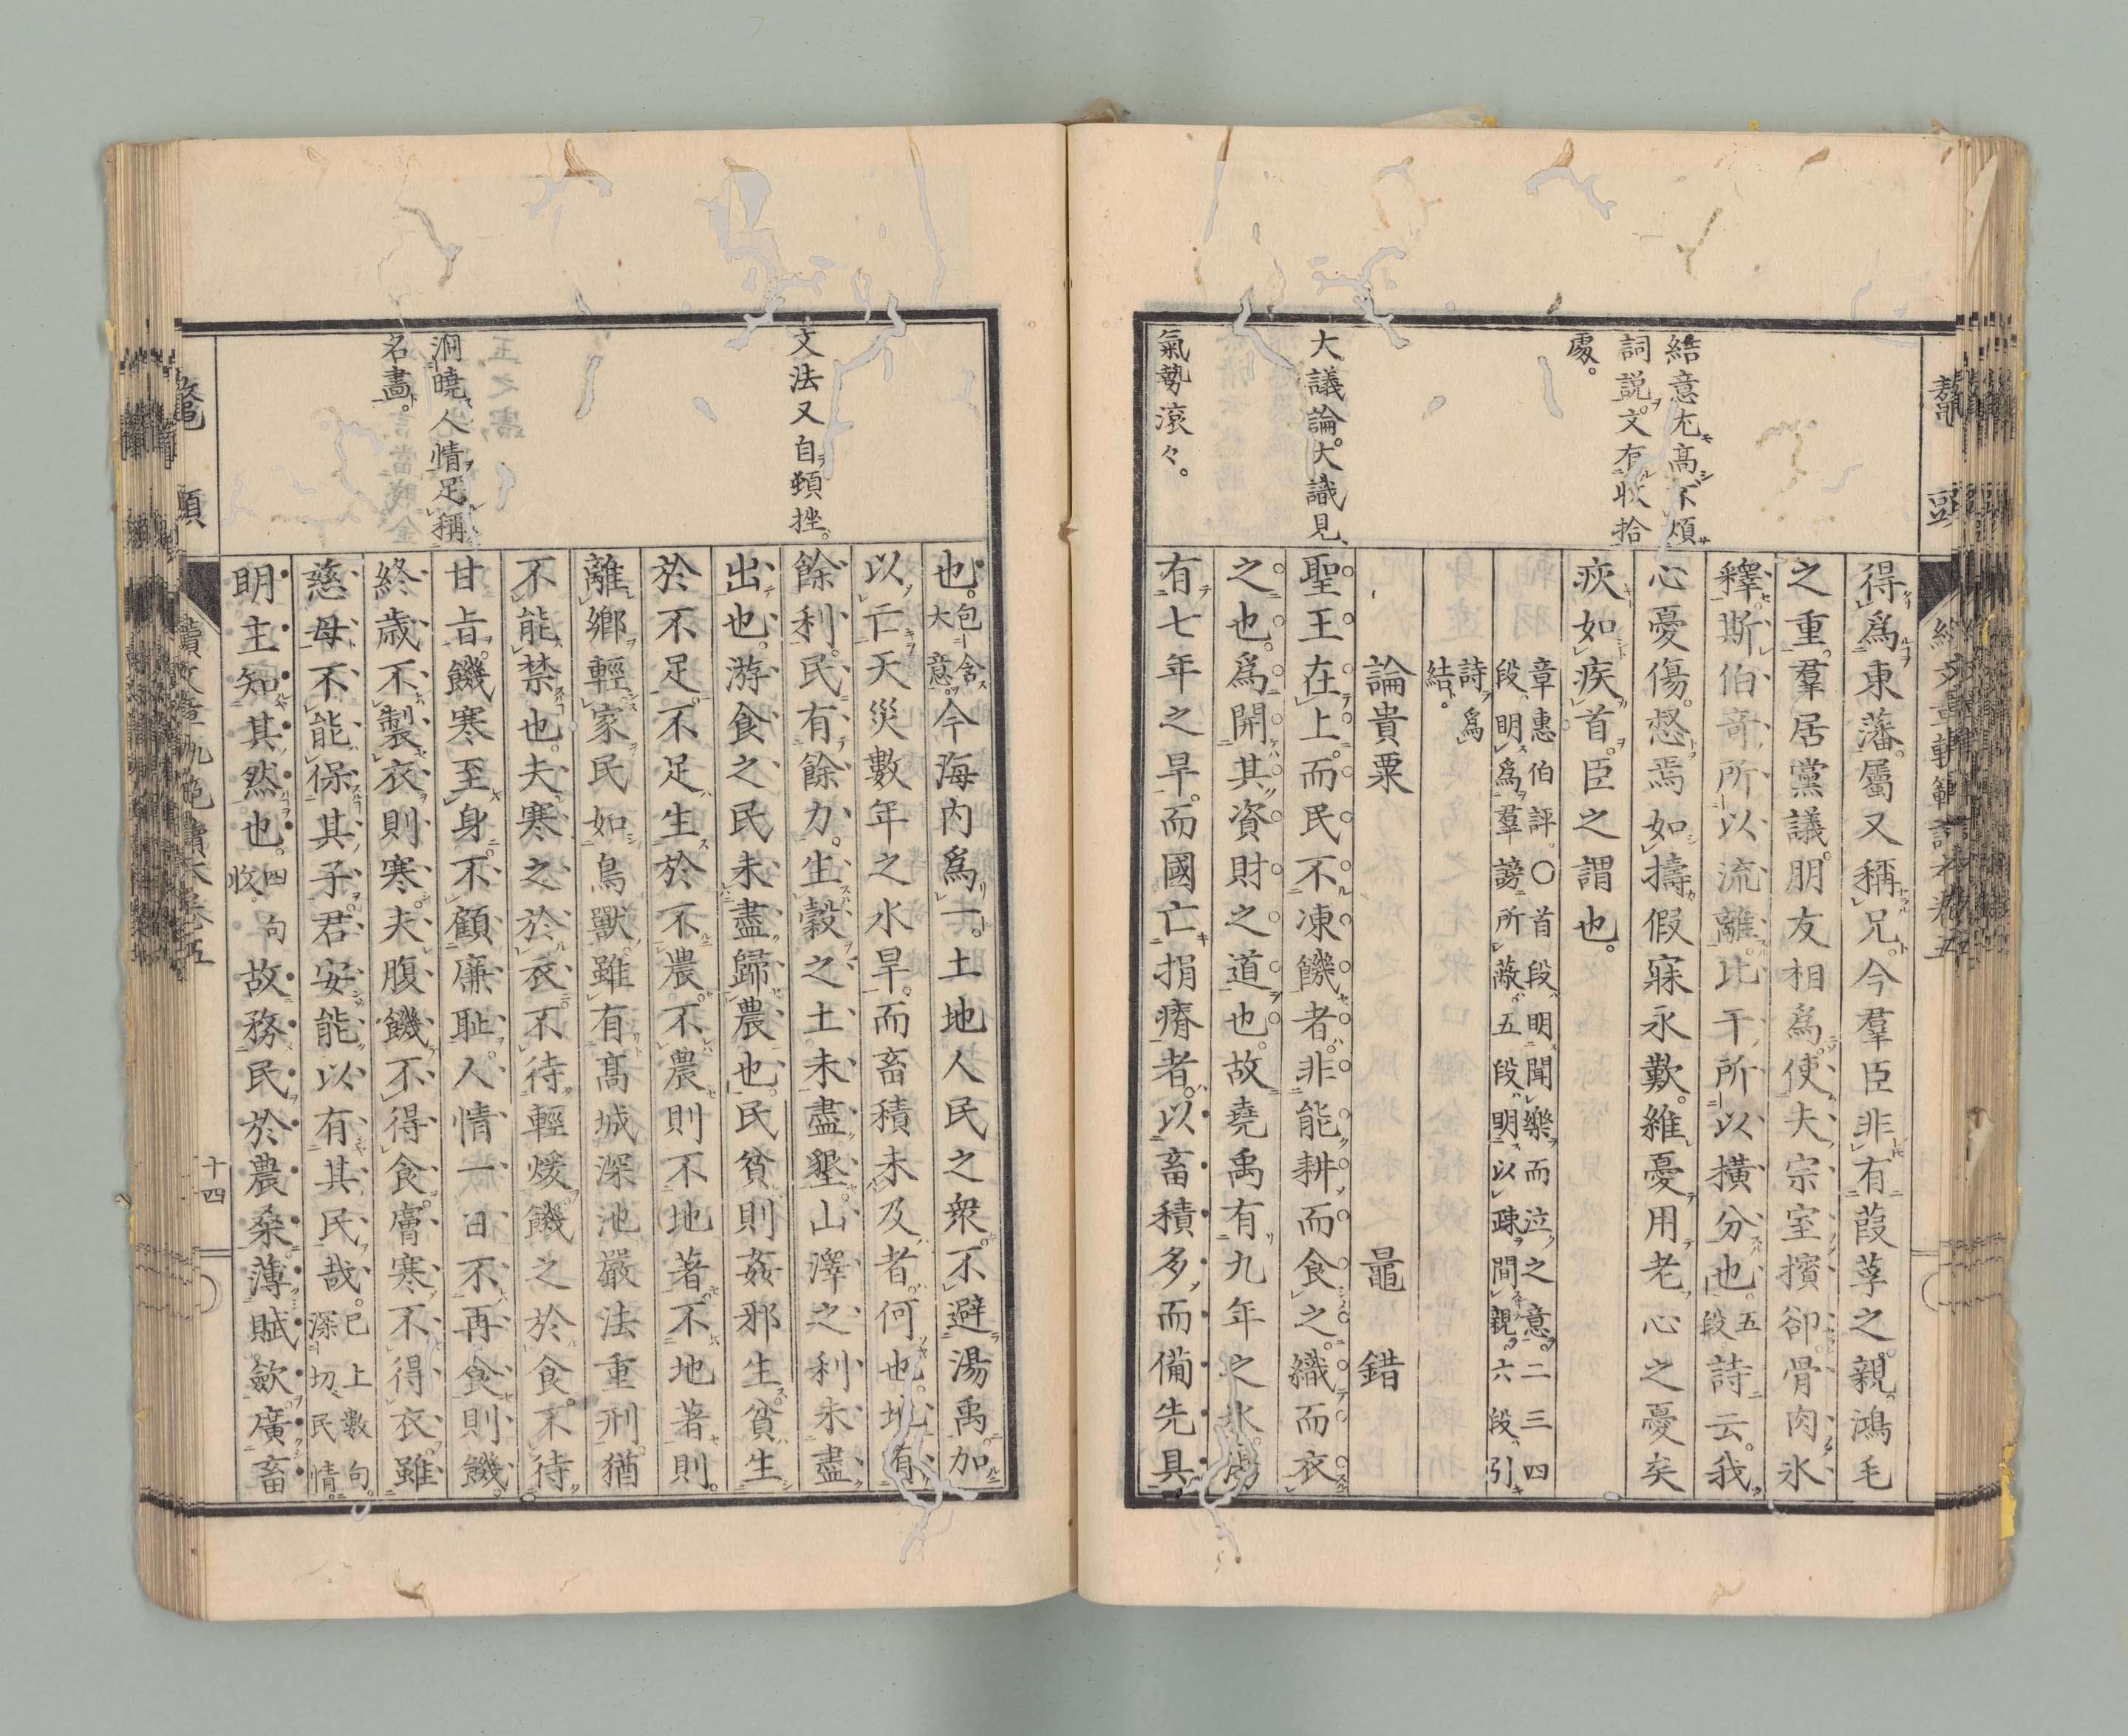 結意尤高不煩
詞説文有收拾
處。
大議論大識見
氣勢滾々。
得爲東藩屬又稱兄今羣臣非有葭莩之親鴻毛
之重羣居黨議朋友相爲使夫宗室擯卻骨肉氷
釋斯伯奇所以流離比干所以横分也五段詩云我
心憂傷惄焉如擣假寐永歎維憂用老心之憂矣
疢如疾首臣之謂也
章惠伯評〇首段明聞樂而泣之意二三四
段明爲羣謗所蔽五段明以疎間親六段引
詩爲
結
論貴粟 鼂錯
聖王在上而民不凍饑者非能耕而食之織而衣
之也爲開其資財之道也故堯禹有九年之水湯
有七年之旱而國亡捐瘠者以畜積多而備先具
文法又自頓挫。
洞曉人情足稱
名畵。
也包舍大意今海内爲一土地人民之衆不避湯禹加
以亡天災數年之水旱而畜積未及者何也地有
餘利民有餘力生穀之土未盡墾山澤之利未盡
出也游食之民未盡歸農也民貧則姦邪生貧生
於不足不足生於不農不農則不地著不地著則
離鄉輕家民如鳥獸雖有高城深池嚴法重刑猶
不能禁也夫寒之於衣不待輕煖饑之於食不待
甘旨饑寒至身不顧廉耻人情一日不再食則饑
終歲不製衣則寒夫腹饑不得食膚寒不得衣雖
慈母不能保其子君安能以有其民哉已上數句深切民情
明主知其然也四句收故務民於農桑薄賦歛廣畜
十四